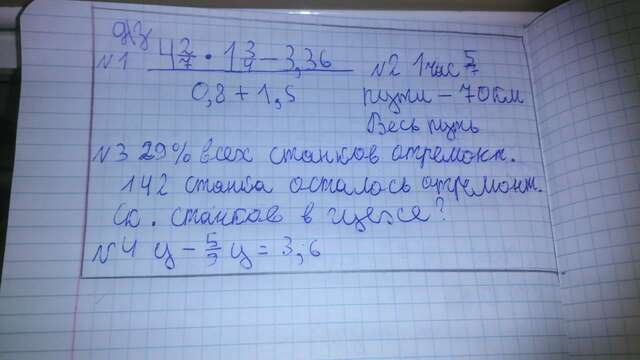 д/з
№1 4 2/7 · 1 3/4 - 3,36
0,8 + 1,5
№2 1 час 5/7
пути - 70 км
Весь путь
№3 29% всех станков отремонт.
142 станка осталось отремонт.
Ск. станков в цехе?
№4 y - 5/9 y = 3,6